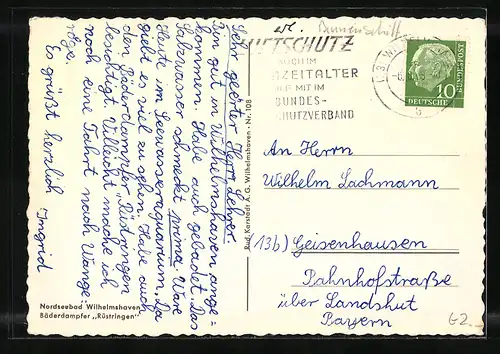 Sehr geehrter Herr Lehrer.
Bin gut in Wilhelmshaven ange=
kommen. Habe auch gebadet. Das
Salzwasser schmeckt prima. War
heute im Seewasseraquarium. Da
giebt es viel zu sehen. Habe auch
den Bäderdampfer „Rüstringen
besichtigt. Villeicht mache ich
noch eine Fahrt nach Wange=
roge.
Es grüßt herzlich
Ingrid
Nordseebad Wilhelmshaven
Bäderdampfer „Rüstringen"
Rud. Karstadt A. G. Wilhelmshaven - Nr. 108
LUFTSCHUTZ
AUCH IM
ZEITALTER
MIT IM
BUNDES-
SCHUTZVERBAND
DEUTSCHE BUNDESPOST
10
An Herrn
Wilhelm Lachmann
(13b) Geisenhausen
Bahnhofstraße
über Landshut
Bayern